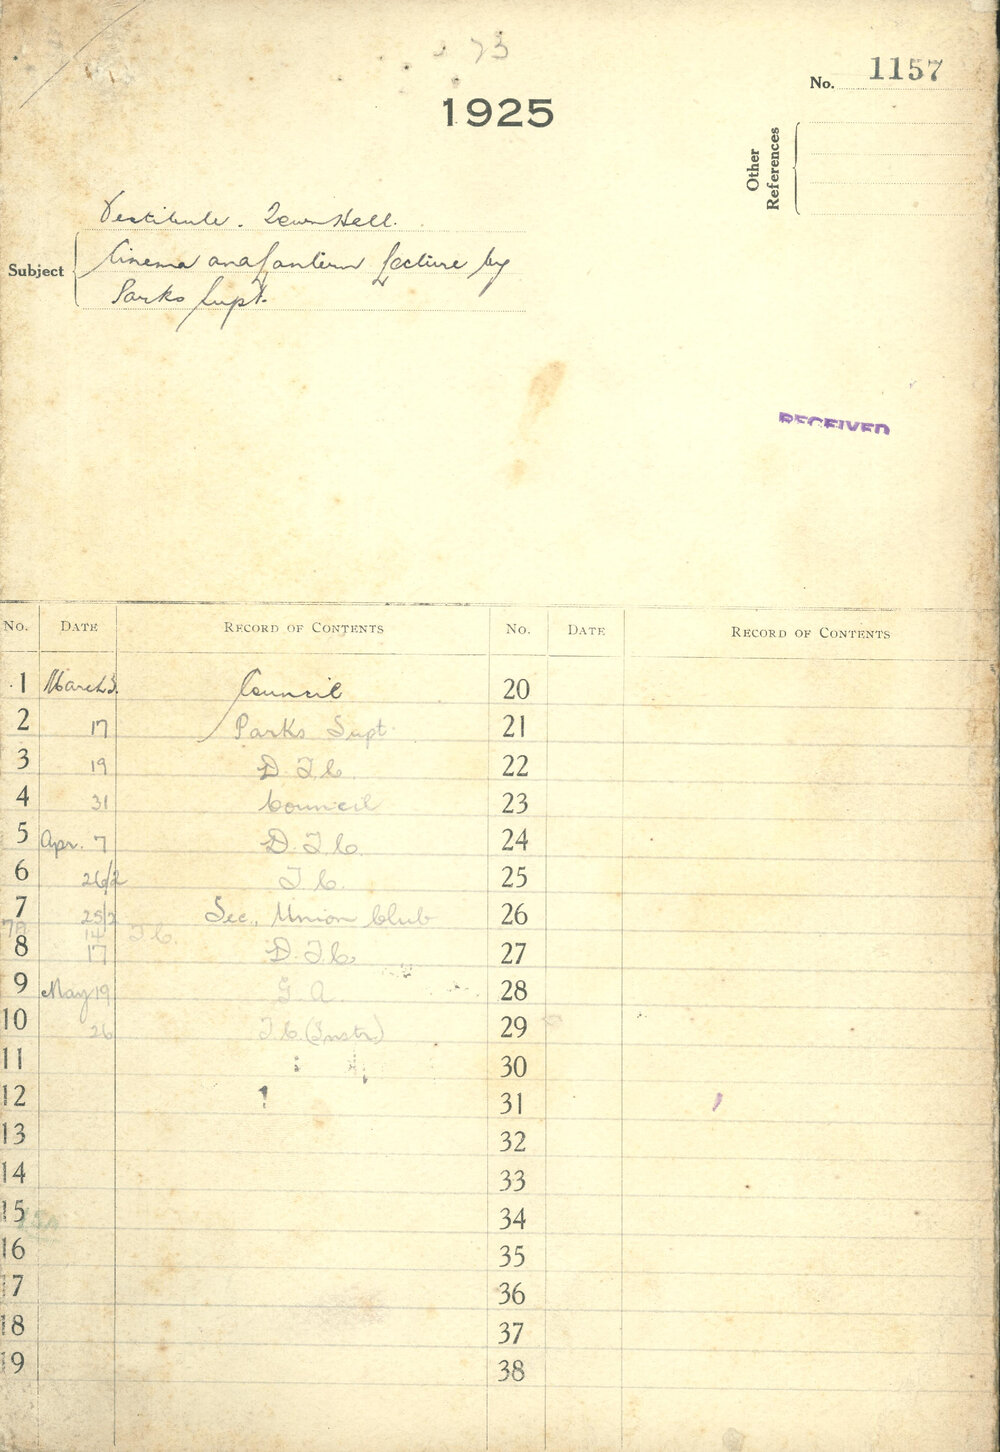 73
1925
No. 1157
Other References
Vestibule. Town Hall.
Subject Cinema and Lantern Lecture by
Parks Supt.
RECEIVED
No. DATE RECORD OF CONTENTS No. DATE RECORD OF CONTENTS
1 March 3. Council 20
2 17 Parks Supt. 21
3 19 D. T. C. 22
4 31 Council 23
5 Apr. 7 D. T. C. 24
6 26/2 T. C. 25
7 25/2 Sec., Union Club 26
7A 14 T. C.
8 17 D. T. C. 27
9 May 19 G. A. 28
10 26 T. C. (Instr.) 29
11 30
12 31
13 32
14 33
15 34
15A
16 35
17 36
18 37
19 38